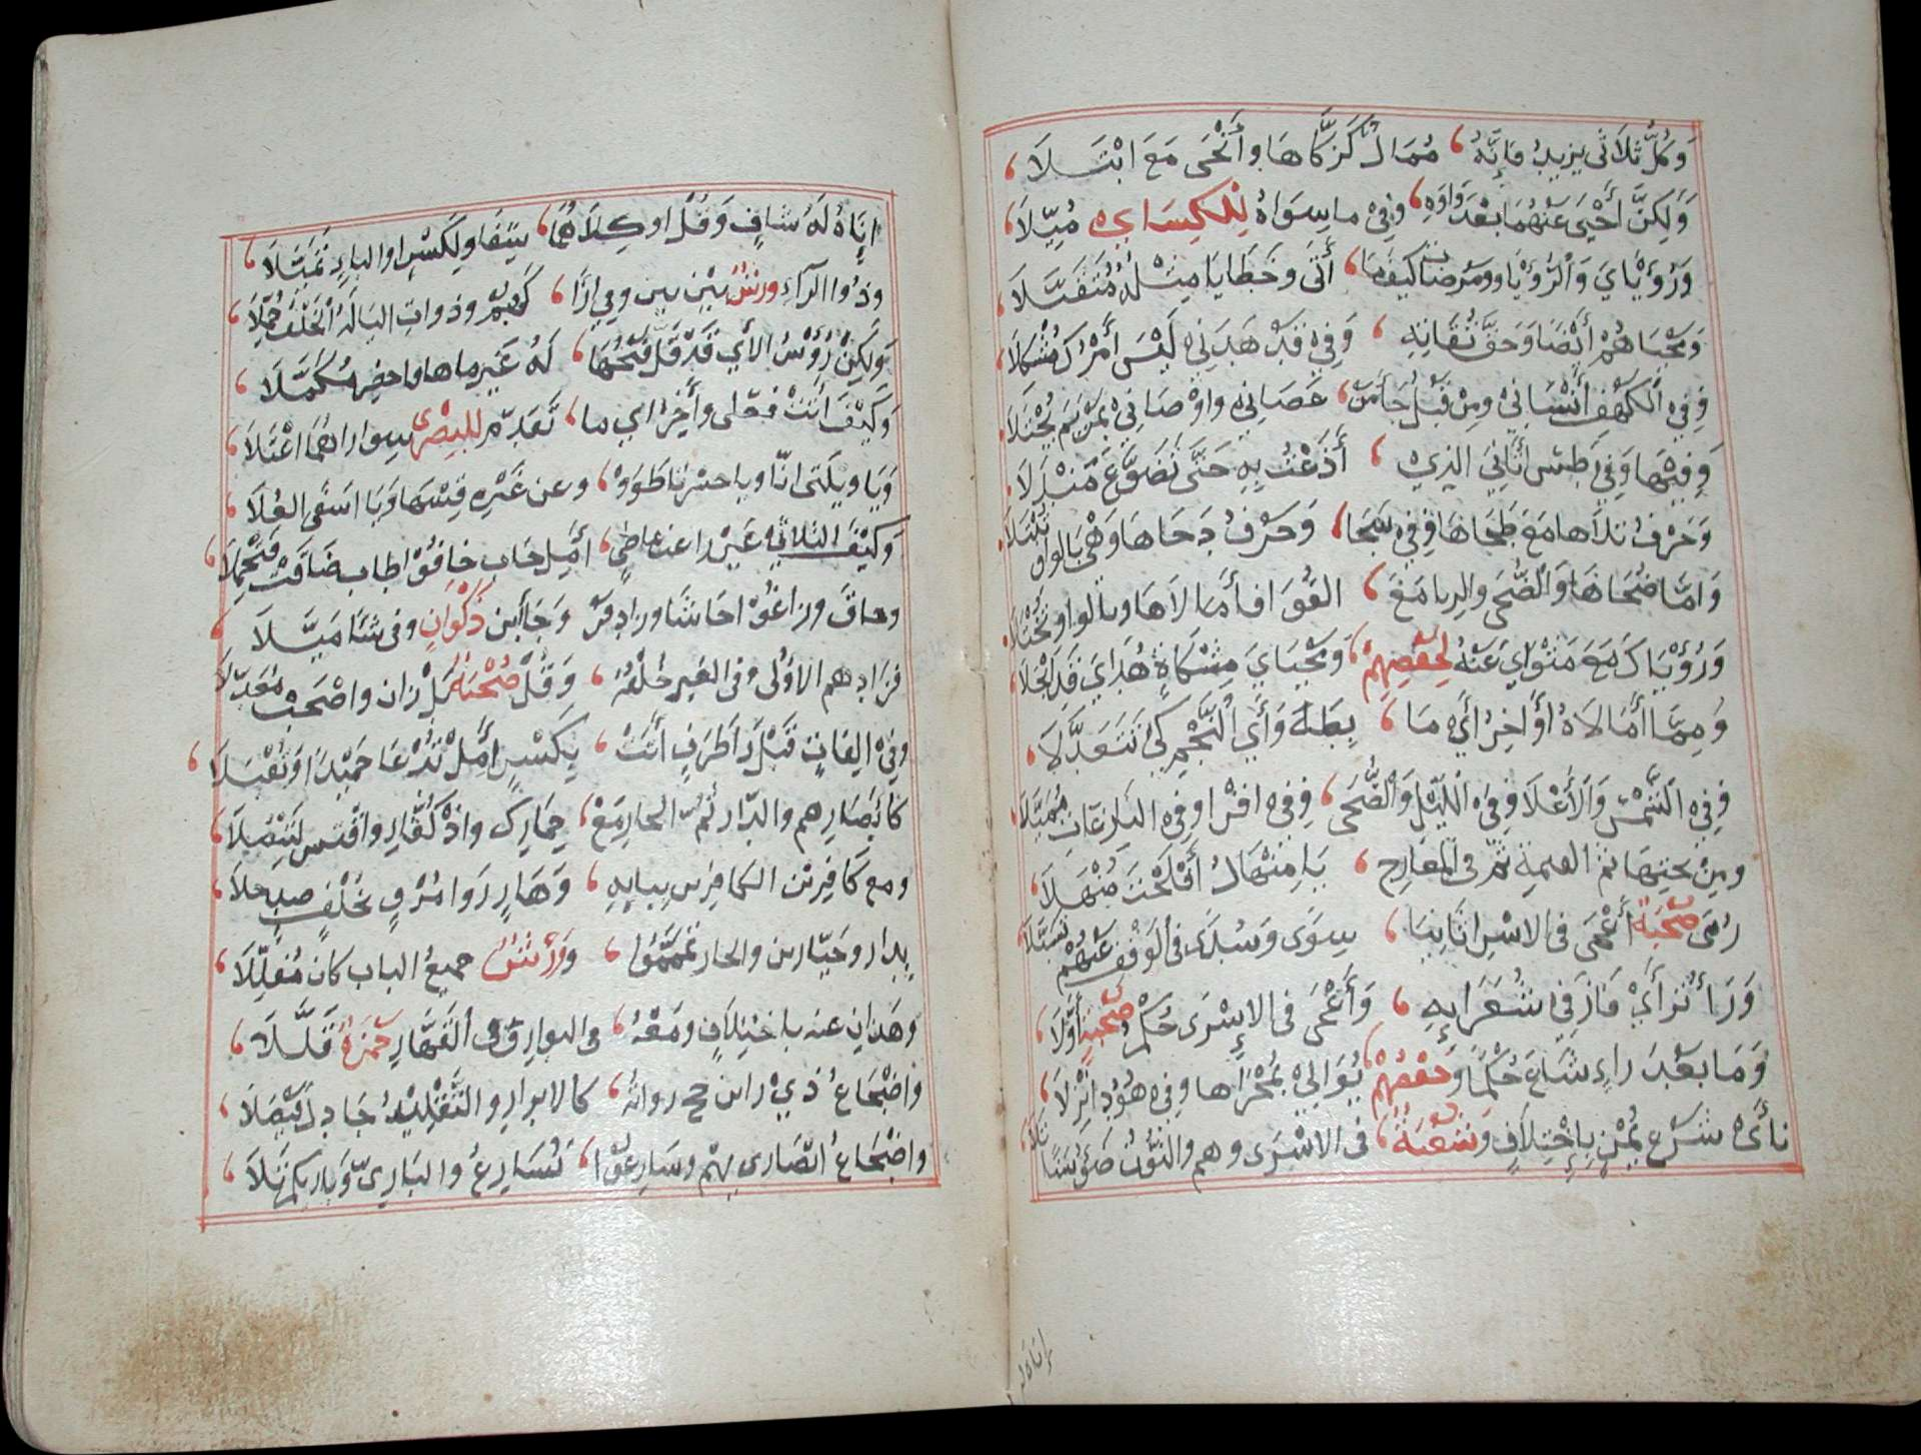 وَكُلُّ ثلَاثى يزيدُ فَإِنَّهُ ، مُمَالٌ كَزَكَّاهَا وأَنْجَى مَعَ ابْتَلَا ،
وَلَكِنَّ أَحْيَى عَنْهُمَا بَعْدَ وَاوِهِ ، وَفِي ما سِوَاهُ لِلْكِسَاىِ مُيِّلَا ،
وَرُؤْيَايَ وَالرُّؤْيَا ومَرْضَات كَيْفَمَا ، أَتَى وخَطَايَا مِثْلُهُ مُتَقَبَّلَا ،
وَمَحْيَاهُمْ أَيْضًا وَحَقَّ تُقَاتِهِ ، وَفِي قَدْ هَدَانِي لَيْسَ أَمْرُكَ مُشْكِلَا ،
وَفِي الْكَهْفِ أَنْسَانِي وَمِنْ قَبْلُ جَا مَنْ ، عَصَانِي وَاوْصَانِي بِمَرْيَم يُجْتَلَا ،
وَفِيهَا وَفِي طس أَتَانِيَ الَّذِي ، أَذَعْتُ بِهِ حَتَّى تَضَوَّعَ مَنْدَلَا ،
وَحَرْفُ تلَاهَا مَعَ طَحَاهَا وَفِي سَجَا ، وَحَرْفُ دَحَاهَا وَهْيَ بالواو تُبْتَلَا ،
وَامَّا ضُحَاهَا وَالضُّحَى وَالرِبَا مَعَ ، القُوَى فَأَمَالَاهَا وبالواو تُخْتَلَا ،
وَرُؤْيَاكَ مَعْ مَثْوَايَ عَنْهُ لِحَفْصِهِمْ ، وَمَحْيَايَ مِشْكَاةٍ هُدَايَ قَدِ انْجَلَا ،
وَمِمَّا أَمَالَاهُ أَوَاخِرُ آيِ مَا ، بِطه وَآيِ النَّجْمِ كَيْ تَتَعَدَّلَا ،
وَفِي الشَّمْسِ وَالْأَعْلَا وَفِي اللَّيْلِ وَالضُّحَى ، وَفِي اقْرَا وَفِي النَّازِعَاتِ تَمَيَّلَا ،
ومِنْ تحتِهَا ثم القيمة ثمّ في المَعَارِجِ ، يَا مِنْهَالُ أَفْلَحْتَ مُنْهِلَا ،
رَمَى صُحْبَةٌ أَعْمَى في الاسْرا ثَانِيًا ، سِوًى وَسُدًى في الوَقْفِ عَنْهُمْ تَسَبَّلَا ،
وَرَاءُ تَرَاءَى فَازَ فِي شُعَرَايِهِ ، وَأَعْمَى فى الاسْرَى حُكْمُ صُحْبَةٍ أَوَّلَا ،
وَمَا بَعْدَ رَاءٍ شَاعَ حُكْمًا وَحَفْصُهُمْ ، يُوَالِي بِمَجْرَاهَا وفِي هُودَ انْزِلَا ،
نَأَى شَرْعُ يُمْنٍ بِاخْتِلَافٍ وَشُعْبَةٌ ، فى الاسْرَى وهم والنُّونُ ضَوْءُ سَنًا تَلَا ،
إناه له
انِاهُ لَهُ شَافٍ وَقُلْ أو كِلَاهُمَا ، شَفَا ولِكَسْرٍ او الياءِ تَمَيَّلَا ،
وذُوا الرَّاءِ ورْشٌ بَيْن بين وفي ارَا ، كَهُمْ وذواتِ اليَا لَهُ الْخُلْفُ جُمِّلَا ،
وَلَكِنْ رُؤُسُ الآيِ قَدْ قَلَّ فَتْحُهَا ، لَهُ غَيْرَ ما ها فاحضر مُكَمَّلَا ،
وَكَيْفَ اتَتْ فَعْلى وآخِرُ اي ما ، تَقَدَّمَ لِلْبَصْرِى سِوا رَاهُمَا اعْتَلَا ،
وَيَا ويلَتى انَّا ويا حسْرتَا طَوَوْا ، وعن غَيْرِهِ قِسْهَا وَيَا اسَفَى العُلَا ،
وَكَيْفَ الثلاثي غَيْرَ زاغت بماضي ، أَمِل خاب خافُوا طاب ضَاقَتْ فَتُجْمِلَا ،
وحاقَ وزاغُوا جَا شَا وزادَ فُزْ وَجَا ابن ذَكْوَانٍ وفى شَا مَيَّلَا ،
فزادهم الاوُلى وفى الغَيرِ خُلْفُهُ ، وَقُلْ صُحْبَةٌ بَلْ رَان واصْحَبْ مُعَدَّلَا
وفِي الِفَاتٍ قَبْلَ رَا طَرَفٍ أَتَتْ ، بِكَسْرٍ أَمِلْ تُدْعَا حَمِيدًا وَتُقْبَلَا ،
كَابْصَارِهم والدّار ثُمَّ الحمار مَعْ ، حِمَارِكَ والكُفَّارِ واقْتَس لتَنْضُلَا ،
ومع كَافِرين الكافِرين بيايِهِ ، وَهَارٍ رَوَا مُرْوٍ بِخُلْفٍ صدٍ حلَا ،
بِدار وجَبّارين والجار تَمَّمُوا ، ووَرْشٌ جميعَ الباب كان مُقَلِّلَا ،
وهَذانِ عنه باختِلَافٍ ومَعْهُ ، في البوارِ وفى القَهَّارِ حَمْزَةُ قَلَّلَا ،
وَاضْجَاعُ ذي رَاءين حج رواتُهُ ، كالابرارِ والتَّقْلِيلُ جَادلَ فَيْصَلَا ،
واضْجَاعُ انْصَارى بِهِمْ وسَارِعُوا ، نُسَارِعُ والبَارِيّ وَبَارِيكُم تَلَا ،